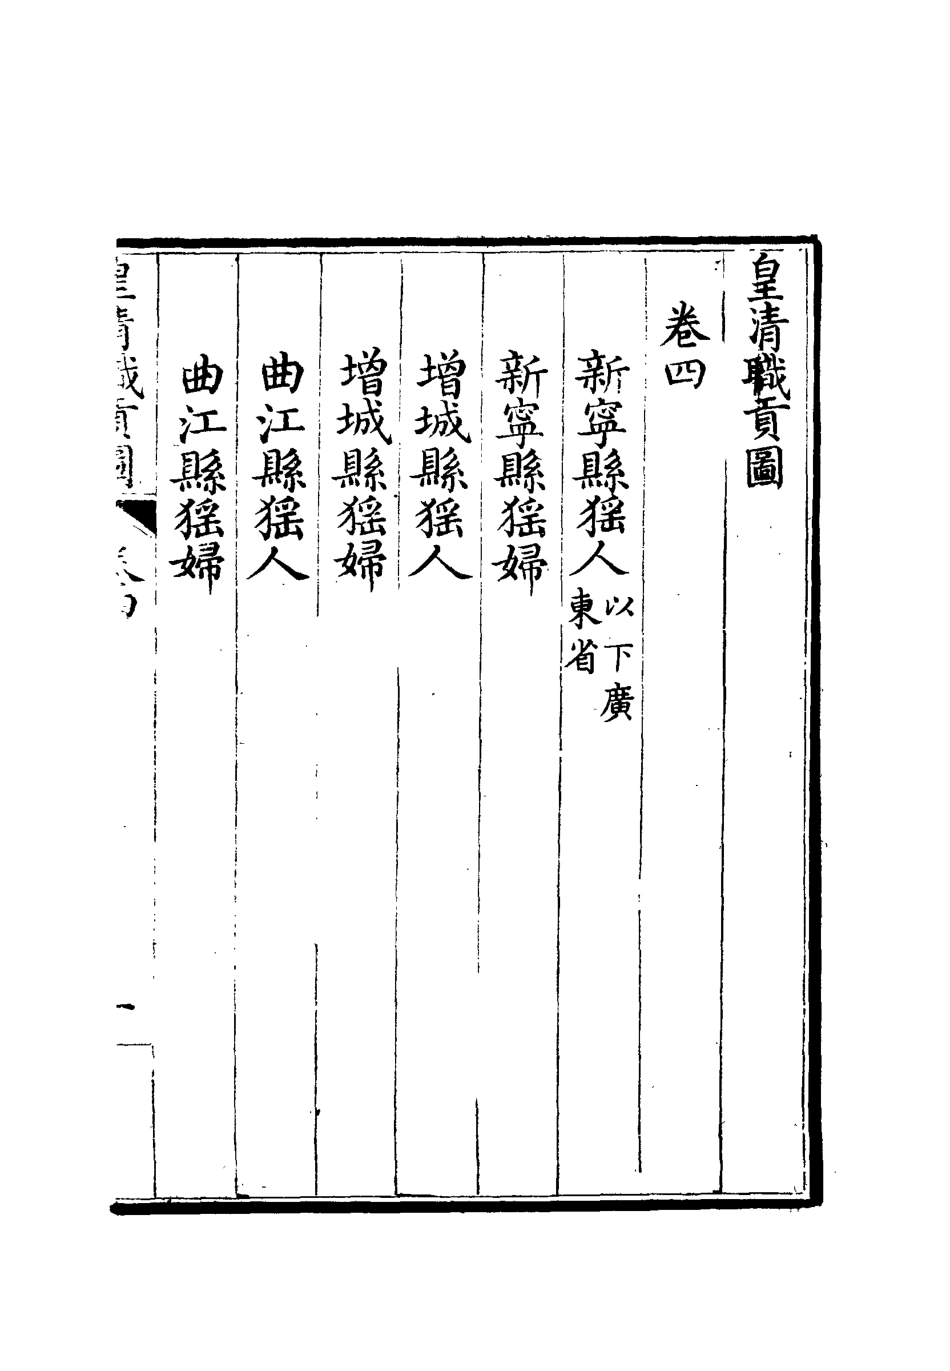 皇清職貢圖
卷四
新寧縣猺人以下廣東省
新寧縣猺婦
增城縣猺人
增城縣猺婦
曲江縣猺人
曲江縣猺婦
皇清職貢圖
卷四
一